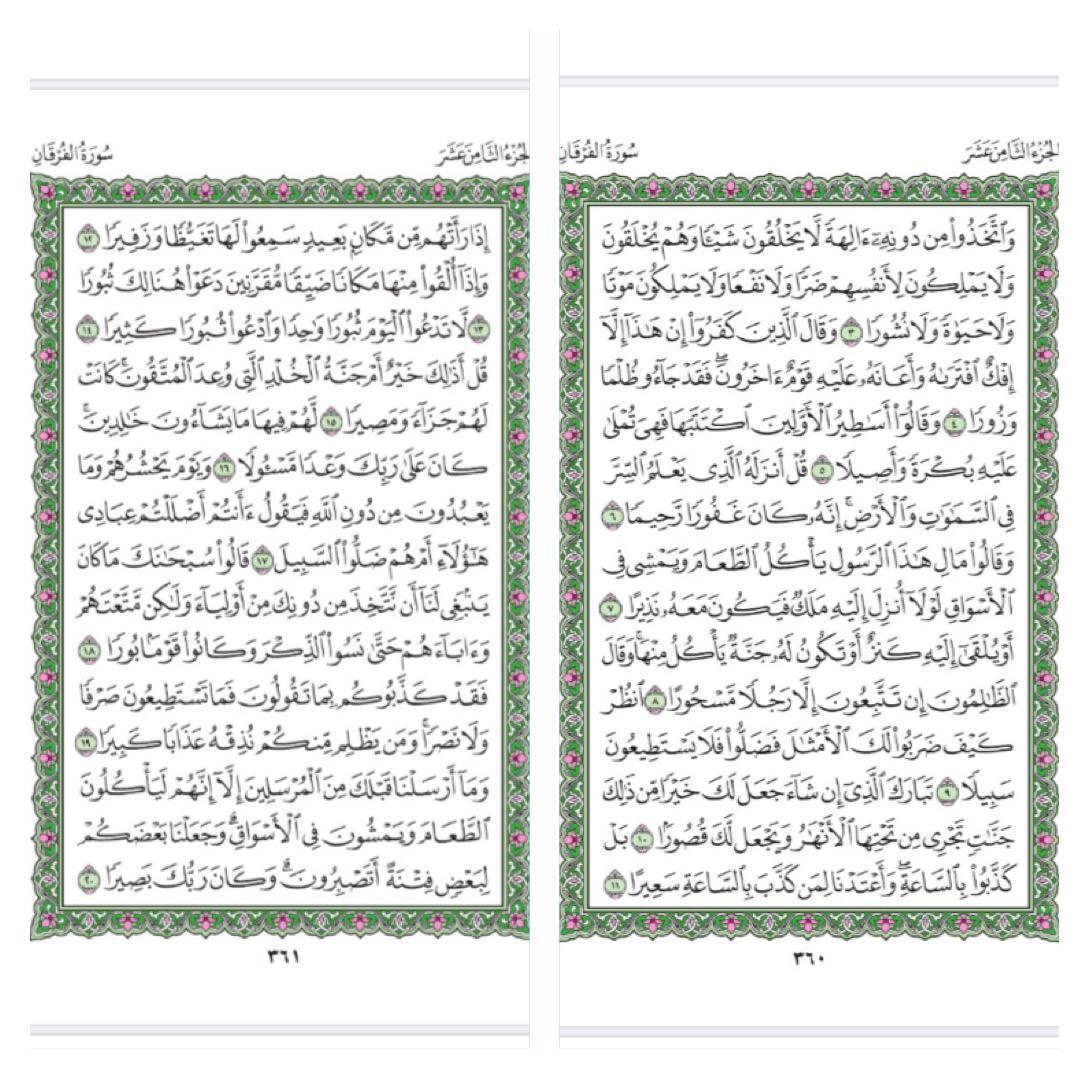 الجزء الثامن عشر
سورة الفرقان
وَٱتَّخَذُوا۟ مِن دُونِهِۦٓ ءَالِهَةً لَّا يَخْلُقُونَ شَيْـًٔا وَهُمْ يُخْلَقُونَ
وَلَا يَمْلِكُونَ لِأَنفُسِهِمْ ضَرًّا وَلَا نَفْعًا وَلَا يَمْلِكُونَ مَوْتًا
وَلَا حَيَوٰةً وَلَا نُشُورًا ٣ وَقَالَ ٱلَّذِينَ كَفَرُوٓا۟ إِنْ هَـٰذَآ إِلَّآ
إِفْكٌ ٱفْتَرَىٰهُ وَأَعَانَهُۥ عَلَيْهِ قَوْمٌ ءَاخَرُونَ ۖ فَقَدْ جَآءُو ظُلْمًا
وَزُورًا ٤ وَقَالُوٓا۟ أَسَـٰطِيرُ ٱلْأَوَّلِينَ ٱكْتَتَبَهَا فَهِىَ تُمْلَىٰ
عَلَيْهِ بُكْرَةً وَأَصِيلًا ٥ قُلْ أَنزَلَهُ ٱلَّذِى يَعْلَمُ ٱلسِّرَّ
فِى ٱلسَّمَـٰوَٰتِ وَٱلْأَرْضِ ۚ إِنَّهُۥ كَانَ غَفُورًا رَّحِيمًا ٦
وَقَالُوا۟ مَالِ هَـٰذَا ٱلرَّسُولِ يَأْكُلُ ٱلطَّعَامَ وَيَمْشِى فِى
ٱلْأَسْوَاقِ ۙ لَوْلَآ أُنزِلَ إِلَيْهِ مَلَكٌ فَيَكُونَ مَعَهُۥ نَذِيرًا ٧
أَوْ يُلْقَىٰٓ إِلَيْهِ كَنزٌ أَوْ تَكُونُ لَهُۥ جَنَّةٌ يَأْكُلُ مِنْهَا ۚ وَقَالَ
ٱلظَّـٰلِمُونَ إِن تَتَّبِعُونَ إِلَّا رَجُلًا مَّسْحُورًا ٨ ٱنظُرْ
كَيْفَ ضَرَبُوا۟ لَكَ ٱلْأَمْثَـٰلَ فَضَلُّوا۟ فَلَا يَسْتَطِيعُونَ
سَبِيلًا ٩ تَبَارَكَ ٱلَّذِىٓ إِن شَآءَ جَعَلَ لَكَ خَيْرًا مِّن ذَٰلِكَ
جَنَّـٰتٍ تَجْرِى مِن تَحْتِهَا ٱلْأَنْهَـٰرُ وَيَجْعَل لَّكَ قُصُورًۢا ١٠ بَلْ
كَذَّبُوا۟ بِٱلسَّاعَةِ ۖ وَأَعْتَدْنَا لِمَن كَذَّبَ بِٱلسَّاعَةِ سَعِيرًا ١١
٣٦٠
الجزء الثامن عشر
سورة الفرقان
إِذَا رَأَتْهُم مِّن مَّكَانٍۭ بَعِيدٍ سَمِعُوا۟ لَهَا تَغَيُّظًا وَزَفِيرًا ١٢
وَإِذَآ أُلْقُوا۟ مِنْهَا مَكَانًا ضَيِّقًا مُّقَرَّنِينَ دَعَوْا۟ هُنَالِكَ ثُبُورًا
١٣ لَّا تَدْعُوا۟ ٱلْيَوْمَ ثُبُورًا وَٰحِدًا وَٱدْعُوا۟ ثُبُورًا كَثِيرًا ١٤
قُلْ أَذَٰلِكَ خَيْرٌ أَمْ جَنَّةُ ٱلْخُلْدِ ٱلَّتِى وُعِدَ ٱلْمُتَّقُونَ ۚ كَانَتْ
لَهُمْ جَزَآءً وَمَصِيرًا ١٥ لَّهُمْ فِيهَا مَا يَشَآءُونَ خَـٰلِدِينَ ۚ
كَانَ عَلَىٰ رَبِّكَ وَعْدًا مَّسْـُٔولًا ١٦ وَيَوْمَ يَحْشُرُهُمْ وَمَا
يَعْبُدُونَ مِن دُونِ ٱللَّهِ فَيَقُولُ ءَأَنتُمْ أَضْلَلْتُمْ عِبَادِى
هَـٰٓؤُلَآءِ أَمْ هُمْ ضَلُّوا۟ ٱلسَّبِيلَ ١٧ قَالُوا۟ سُبْحَـٰنَكَ مَا كَانَ
يَنۢبَغِى لَنَآ أَن نَّتَّخِذَ مِن دُونِكَ مِنْ أَوْلِيَآءَ وَلَـٰكِن مَّتَّعْتَهُمْ
وَءَابَآءَهُمْ حَتَّىٰ نَسُوا۟ ٱلذِّكْرَ وَكَانُوا۟ قَوْمًۢا بُورًا ١٨
فَقَدْ كَذَّبُوكُم بِمَا تَقُولُونَ فَمَا تَسْتَطِيعُونَ صَرْفًا
وَلَا نَصْرًا ۚ وَمَن يَظْلِم مِّنكُمْ نُذِقْهُ عَذَابًا كَبِيرًا ١٩
وَمَآ أَرْسَلْنَا قَبْلَكَ مِنَ ٱلْمُرْسَلِينَ إِلَّآ إِنَّهُمْ لَيَأْكُلُونَ
ٱلطَّعَامَ وَيَمْشُونَ فِى ٱلْأَسْوَاقِ ۗ وَجَعَلْنَا بَعْضَكُمْ
لِبَعْضٍ فِتْنَةً أَتَصْبِرُونَ ۗ وَكَانَ رَبُّكَ بَصِيرًا ٢٠
٣٦١